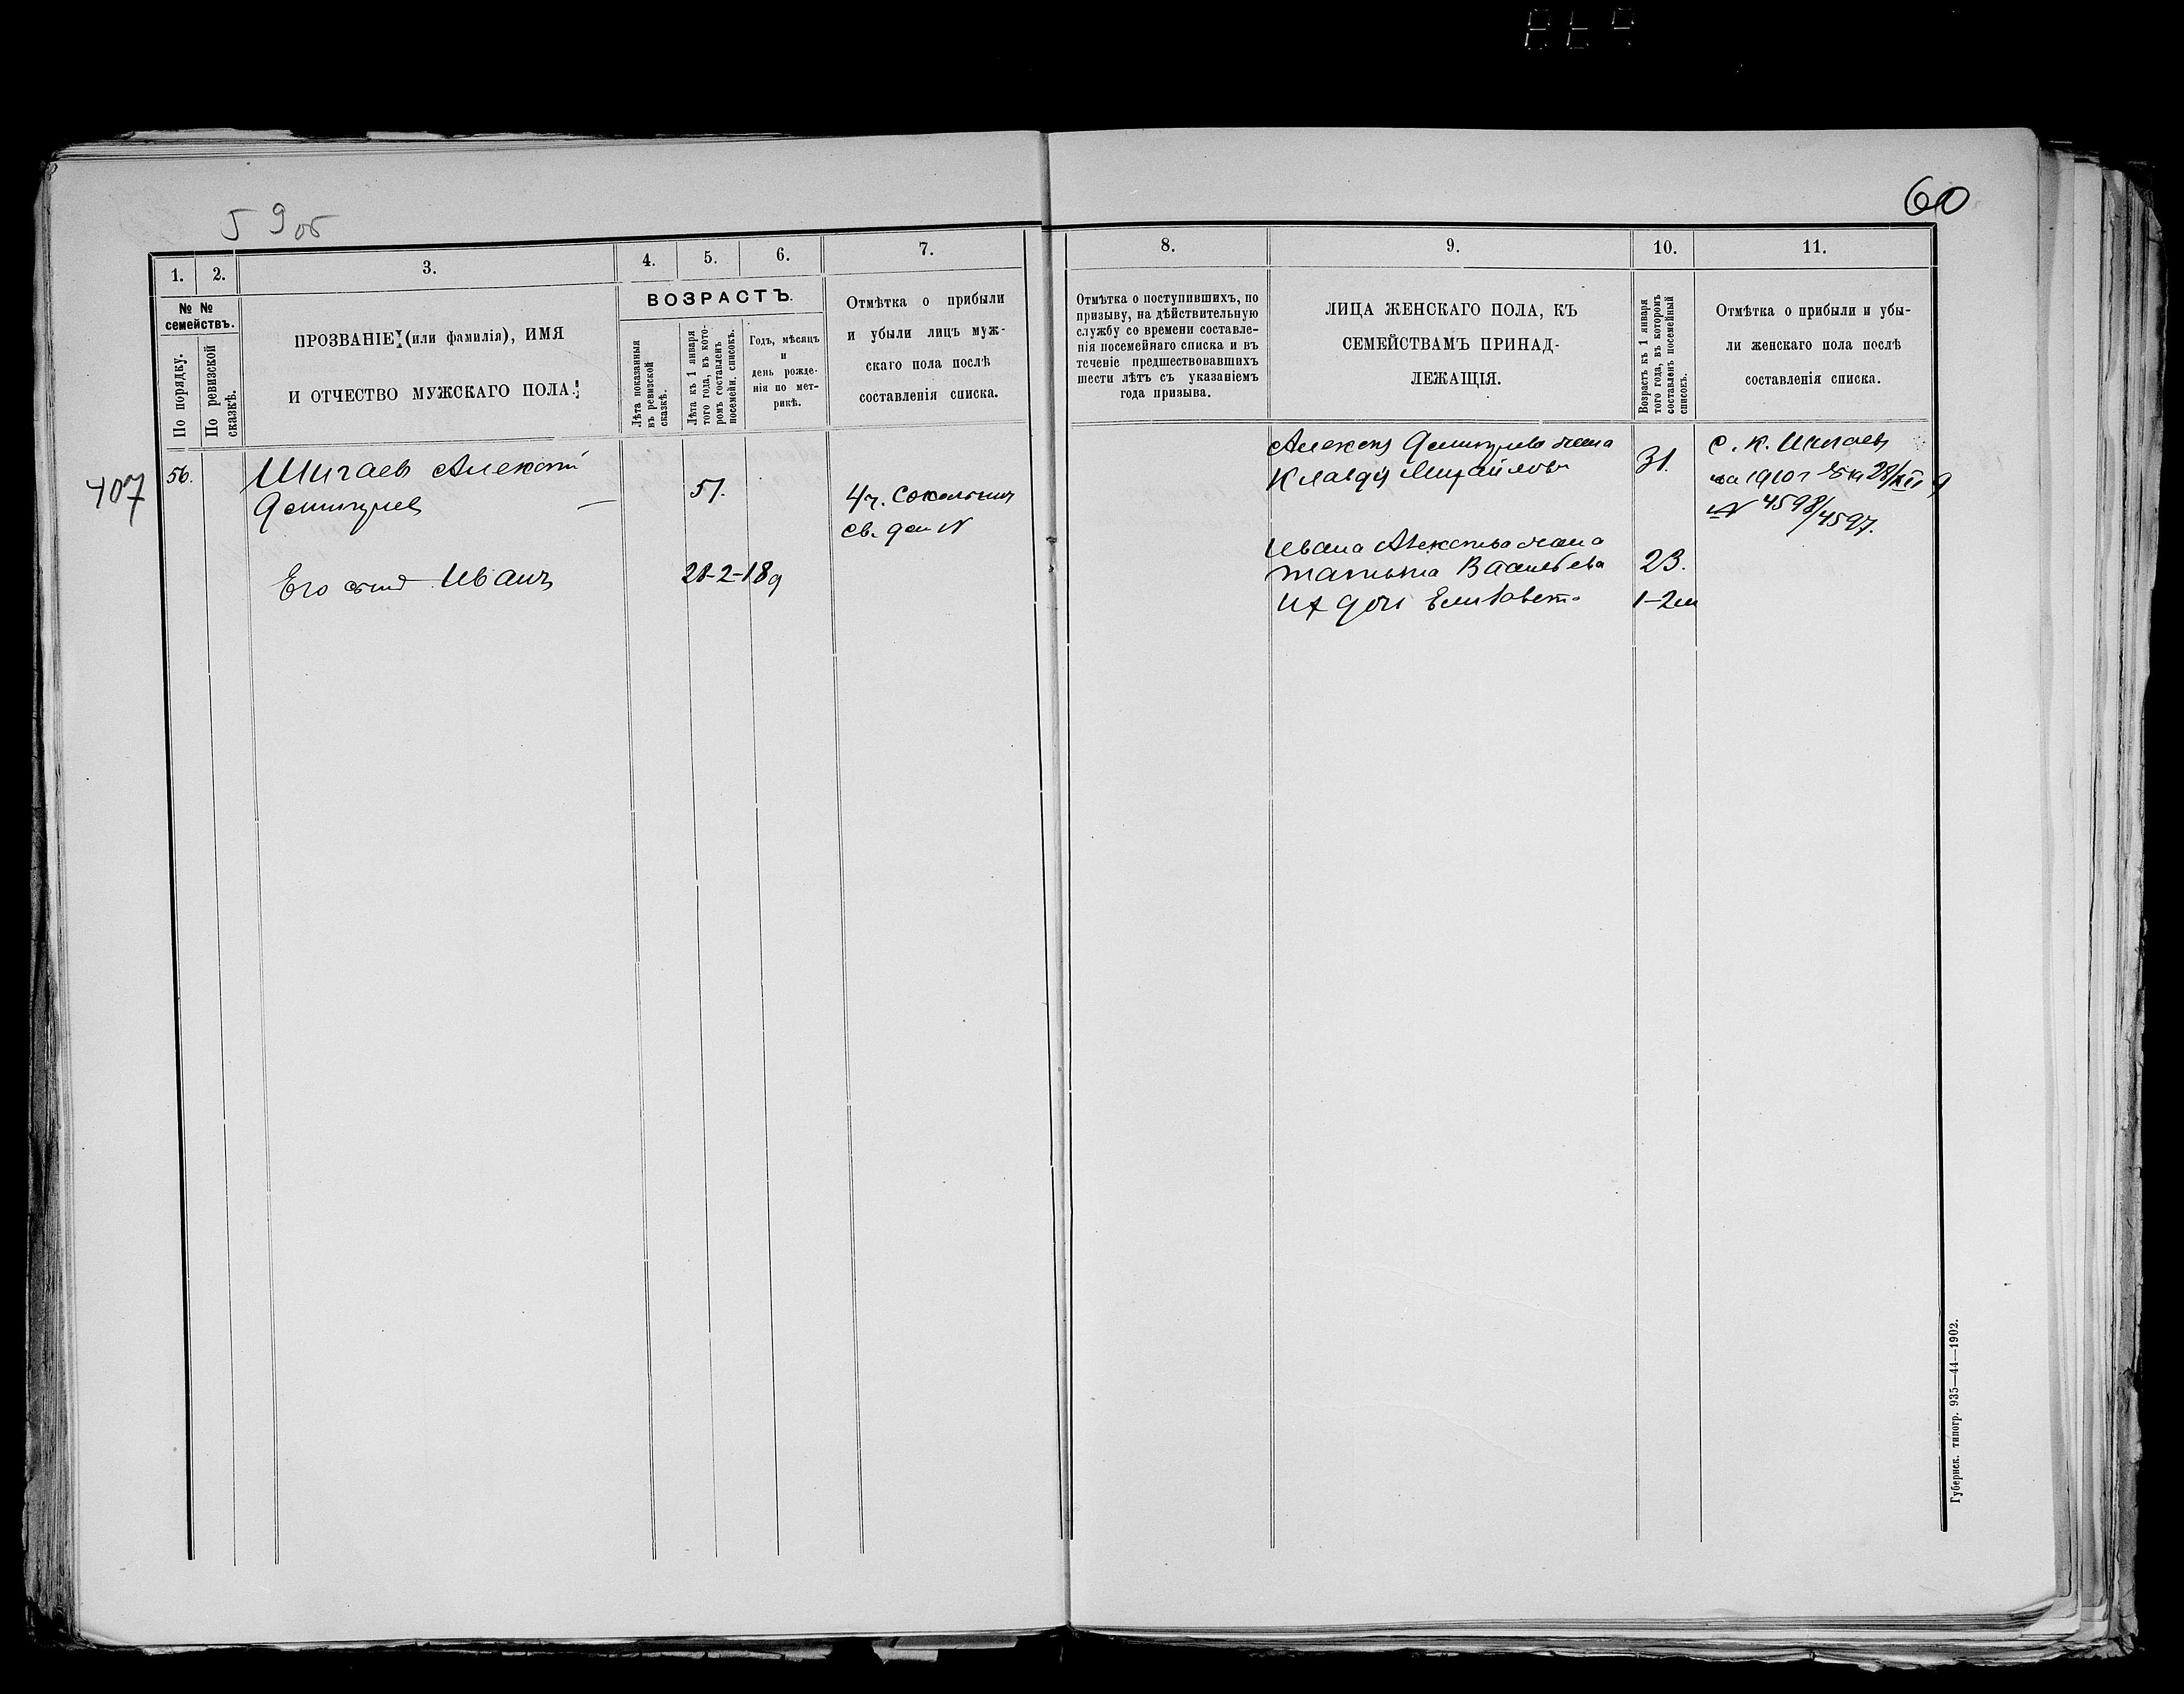 59об
60
1.
2.
3.
4.
5.
6.
7.
8.
9.
10.
11.
№ №
семействъ.
По порядку.
По ревизской
сказкѣ.
ПРОЗВАНІЕ (или фамилія), ИМЯ
И ОТЧЕСТВО МУЖСКАГО ПОЛА.
ВОЗРАСТЪ.
Лѣта показанныя
въ ревизской
сказкѣ.
Лѣта къ 1 января
того года, въ кото-
ромъ составленъ
посемейн. списокъ.
Годъ, мѣсяцъ
и
день рожде-
нія по мет-
рикѣ.
Отмѣтка о прибыли
и убыли лицъ муж-
скаго пола послѣ
составленія списка.
Отмѣтка о поступившихъ, по
призыву, на дѣйствительную
службу со времени составле-
нія посемейнаго списка и въ
теченіе предшествовавшихъ
шести лѣтъ съ указаніемъ
года призыва.
ЛИЦА ЖЕНСКАГО ПОЛА, КЪ
СЕМЕЙСТВАМЪ ПРИНАД-
ЛЕЖАЩІЯ.
Возрастъ къ 1 января
того года, въ которомъ
составленъ посемейный
списокъ.
Отмѣтка о прибыли и убы-
ли женскаго пола послѣ
составленія списка.
407
56.
Шигаевъ Алексѣй
Дмитріев
51.
4 ч.
св. д
Его сынъ Иванъ
28-2-189
Алексѣя Дмитріева жена
Клавдія Михайлова
31.
С. К. Шигаевъ
на 1910 г 28/XII 9
№ 4598/4597.
Ивана Алексѣева жена
Татьяна Васильева
23.
Их дочь Елизавета
1-2м
Губернск. типогр. 935—44—1902.